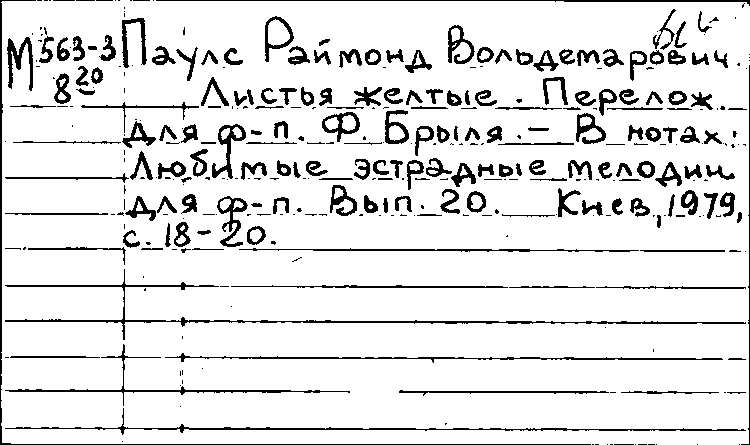 М 563-3
8 20
Паулс Раймонд Вольдемарович.
Листья желтые. Перелож.
для ф-п. Ф. Брыля. – В нотах:
Любимые эстрадные мелодии
для ф-п. Вып. 20. Киев, 1979,
с. 18-20.